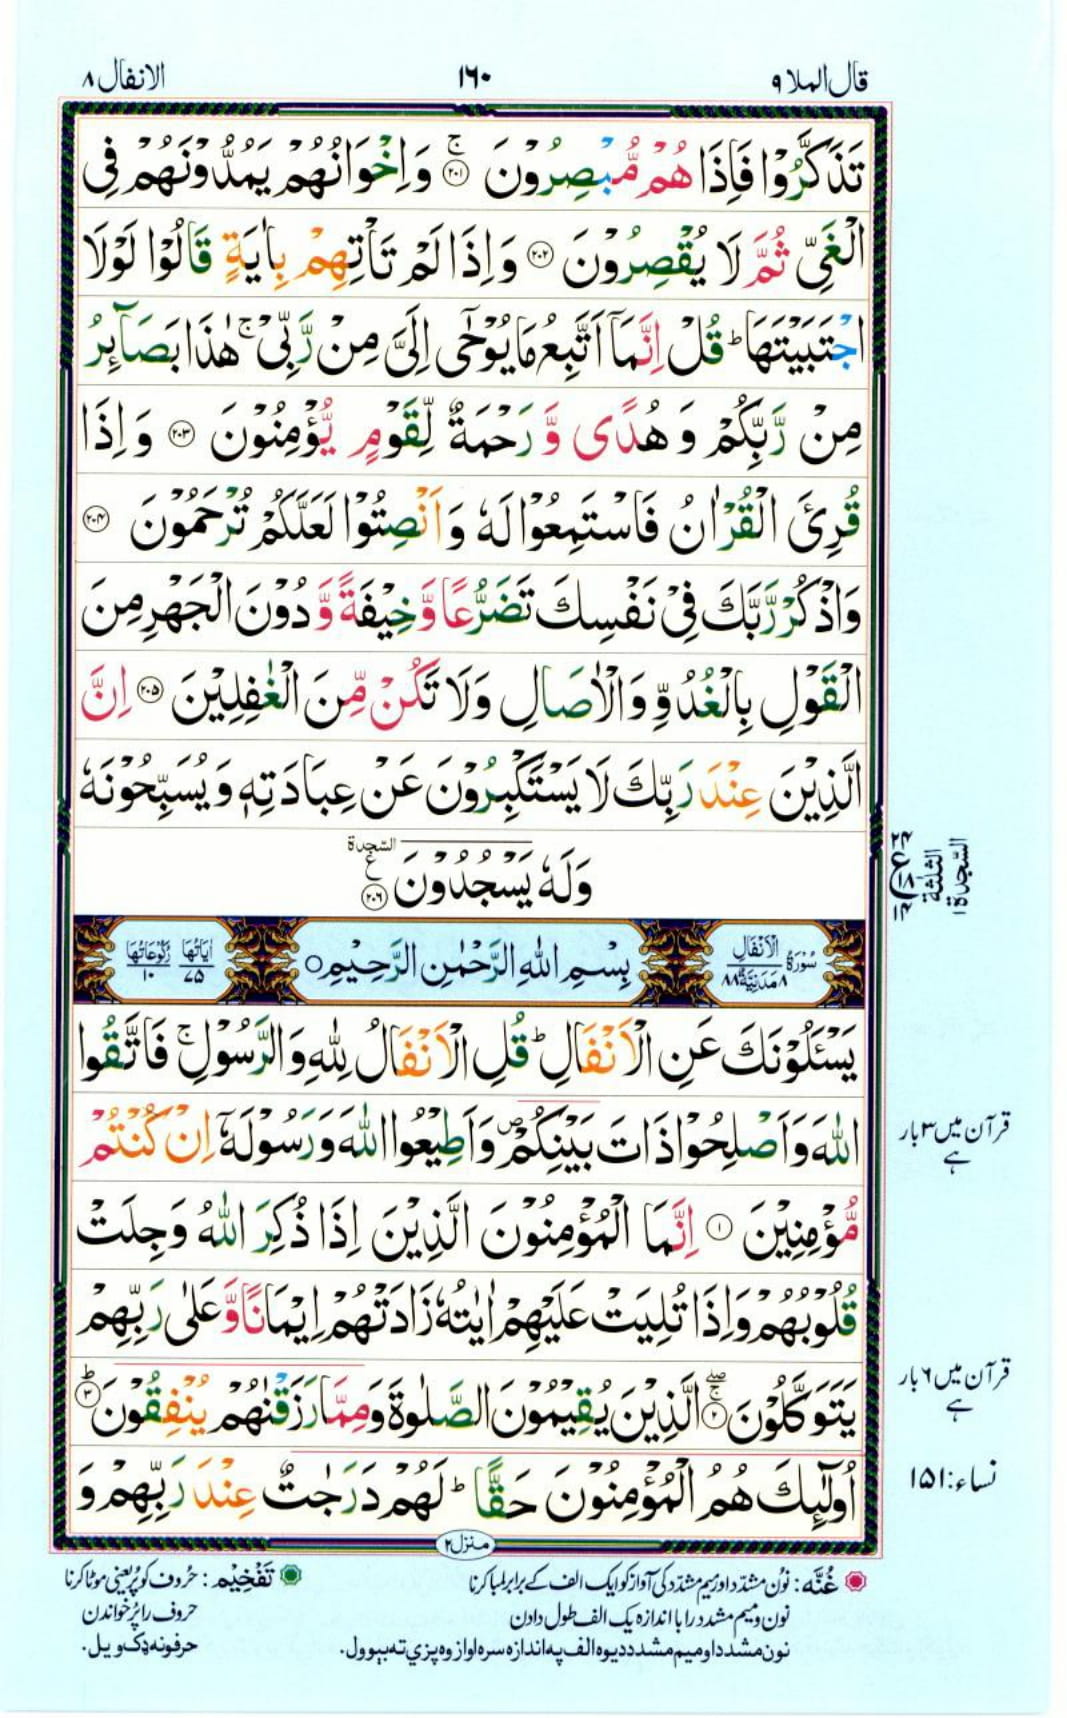 قال الملا ۹
۱۶۰
الانفال ۸
تَذَكَّرُوْا فَاِذَا هُمْ مُّبْصِرُوْنَ ۚ ﴿۲۰۱﴾ وَاِخْوَانُهُمْ يَمُدُّوْنَهُمْ فِى
الْغَىِّ ثُمَّ لَا يُقْصِرُوْنَ ﴿۲۰۲﴾ وَاِذَا لَمْ تَاْتِهِمْ بِاٰيَةٍ قَالُوْا لَوْلَا
اجْتَبَيْتَهَا ؕ قُلْ اِنَّمَاۤ اَتَّبِعُ مَا يُوْحٰٓى اِلَىَّ مِنْ رَّبِّىْ ۚ هٰذَا بَصَآئِرُ
مِنْ رَّبِّكُمْ وَ هُدًى وَّ رَحْمَةٌ لِّقَوْمٍ يُّؤْمِنُوْنَ ﴿۲۰۳﴾ وَ اِذَا
قُرِئَ الْقُرْاٰنُ فَاسْتَمِعُوْا لَهٗ وَ اَنْصِتُوْا لَعَلَّكُمْ تُرْحَمُوْنَ ﴿۲۰۴﴾
وَاذْكُرْ رَّبَّكَ فِىْ نَفْسِكَ تَضَرُّعًا وَّ خِيْفَةً وَّ دُوْنَ الْجَهْرِ مِنَ
الْقَوْلِ بِالْغُدُوِّ وَالْاٰصَالِ وَلَا تَكُنْ مِّنَ الْغٰفِلِيْنَ ﴿۲۰۵﴾ اِنَّ
الَّذِيْنَ عِنْدَ رَبِّكَ لَا يَسْتَكْبِرُوْنَ عَنْ عِبَادَتِهٖ وَ يُسَبِّحُوْنَهٗ
وَلَهٗ يَسْجُدُوْنَ ﴿۲۰۶﴾ السّجدة ع
۲۴ ع ۱۸ ۱۴
السّجدة ۱ الثلثة
سُوْرَةُ الْاَنْفَالِ ۸ مَدَنِيَّةٌ ۸۸
بِسْمِ اللهِ الرَّحْمٰنِ الرَّحِيْمِ ○
اٰيَاتُهَا ۷۵ رُكُوْعَاتُهَا ۱۰
يَسْئَلُوْنَكَ عَنِ الْاَنْفَالِ ؕ قُلِ الْاَنْفَالُ لِلّٰهِ وَ الرَّسُوْلِ ۚ فَاتَّقُوا
اللهَ وَ اَصْلِحُوْا ذَاتَ بَيْنِكُمْ ۪ وَ اَطِيْعُوا اللهَ وَ رَسُوْلَهٗۤ اِنْ كُنْتُمْ
قرآن میں ۳ بار ہے
مُّؤْمِنِيْنَ ﴿۱﴾ اِنَّمَا الْمُؤْمِنُوْنَ الَّذِيْنَ اِذَا ذُكِرَ اللهُ وَجِلَتْ
قُلُوْبُهُمْ وَاِذَا تُلِيَتْ عَلَيْهِمْ اٰيٰتُهٗ زَادَتْهُمْ اِيْمَانًا وَّ عَلٰى رَبِّهِمْ
يَتَوَكَّلُوْنَ ﴿۲﴾ الَّذِيْنَ يُقِيْمُوْنَ الصَّلٰوةَ وَ مِمَّا رَزَقْنٰهُمْ يُنْفِقُوْنَ ؕ ﴿۳﴾
قرآن میں ۶ بار ہے
اُولٰٓئِكَ هُمُ الْمُؤْمِنُوْنَ حَقًّا ؕ لَهُمْ دَرَجٰتٌ عِنْدَ رَبِّهِمْ وَ
نساء: ۱۵۱
منزل ۲
غُنَّه: نون مشدّد اور میم مشدّد کی آواز کو ایک الف کے برابر لمبا کرنا
نون و میم مشدد را با اندازه یک الف طول دادن
نون مشدد او میم مشدد د یوه الف په اندازه سره اواز وه پزي ته بېوول.
تَفْخِيْم: حُروف کو پُر یعنی موٹا کرنا
حروف را پُر خواندن
حرفونه ډک ویل.